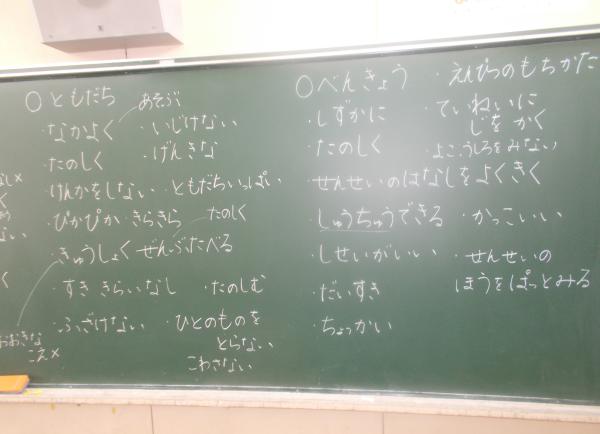 ○ともだち
あそぶ
・なかよく
・いじけない
・たのしく
・げんきな
・けんかをしない
・ともだちいっぱい
・ぴかぴか・きらきら
たのしく
・きゅうしょく ぜんぶたべる
・すききらいなし
・たのしむ
・ふざけない
・ひとのものを
とらない
こわさない
おおきな
こえ×
○べんきょう
・しずかに
・たのしく
・せんせいのはなしをよくきく
・しゅうちゅうできる
・しせいがいい
・だいすき
・ちょっかい
・えんぴつのもちかた
・ていねいに
じをかく
・よこうしろをみない
・かっこいい
・せんせいの
ほうをぱっとみる